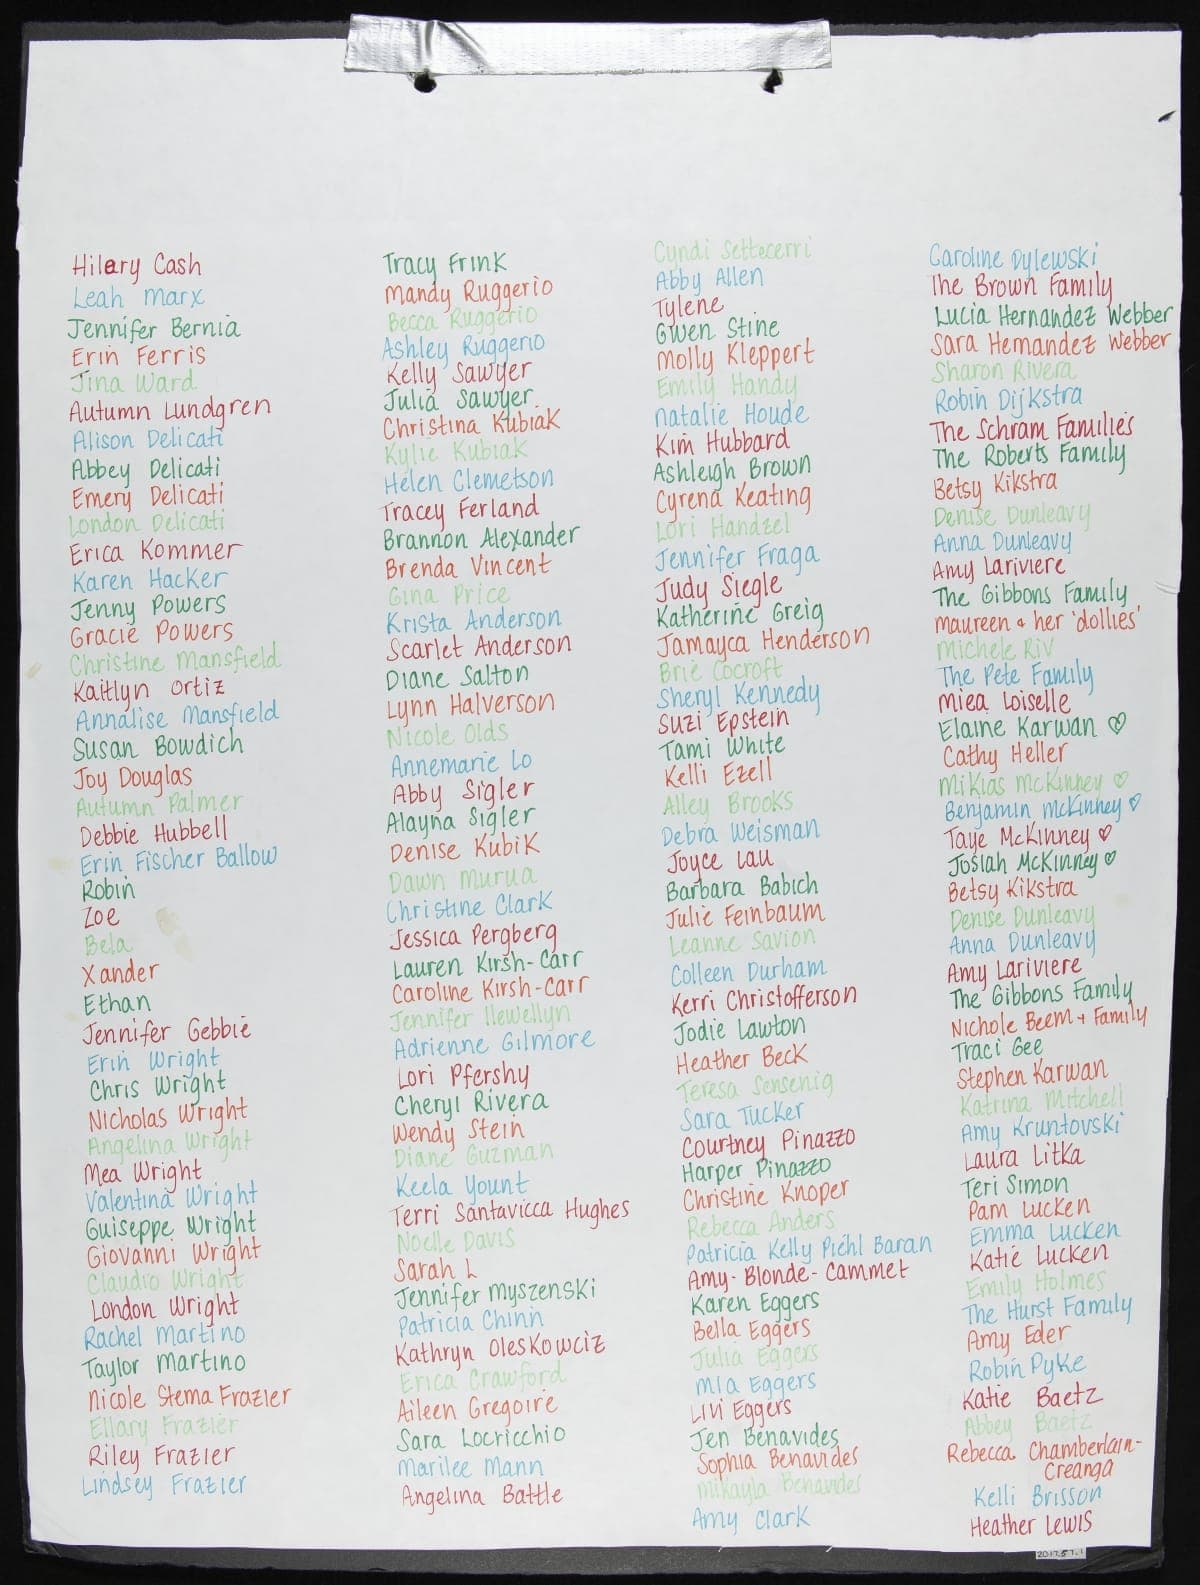 Hilary Cash
Leah Marx
Jennifer Bernia
Erin Ferris
Jina Ward
Autumn Lundgren
Alison Delicati
Abbey Delicati
Emery Delicati
London Delicati
Erica Kommer
Karen Hacker
Jenny Powers
Gracie Powers
Christine Mansfield
Kaitlyn Ortiz
Annalise Mansfield
Susan Bowdich
Joy Douglas
Autumn Palmer
Debbie Hubbell
Erin Fischer Ballow
Robin
Zoe
Bela
Xander
Ethan
Jennifer Gebbie
Erin Wright
Chris Wright
Nicholas Wright
Angelina Wright
Mea Wright
Valentina Wright
Guiseppe Wright
Giovanni Wright
Claudio Wright
London Wright
Rachel Martino
Taylor Martino
Nicole Stema Frazier
Ellary Frazier
Riley Frazier
Lindsey Frazier
Tracy Frink
Mandy Ruggerio
Becca Ruggerio
Ashley Ruggerio
Kelly Sawyer
Julia Sawyer
Christina Kubiak
Kylie Kubiak
Helen Clemetson
Tracey Ferland
Brannon Alexander
Brenda Vincent
Gina Price
Krista Anderson
Scarlet Anderson
Diane Salton
Lynn Halverson
Nicole Olds
Annemarie Lo
Abby Sigler
Alayna Sigler
Denise Kubik
Dawn Murua
Christine Clark
Jessica Pergberg
Lauren Kirsh-Carr
Caroline Kirsh-Carr
Jennifer Llewellyn
Adrienne Gilmore
Lori Pfershy
Cheryl Rivera
Wendy Stein
Diane Guzman
Keela Yount
Terri Santavicca Hughes
Noelle Davis
Sarah L
Jennifer Myszenski
Patricia Chinn
Kathryn Oleskowciz
Erica Crawford
Aileen Gregoire
Sara Locricchio
Marilee Mann
Angelina Battle
Cyndi Settecerri
Abby Allen
Tylene
Gwen Stine
Molly Kleppert
Emily Handy
Natalie Houde
Kim Hubbard
Ashleigh Brown
Cyrena Keating
Lori Handzel
Jennifer Fraga
Judy Siegle
Katherine Greig
Jamayca Henderson
Brie Cocroft
Sheryl Kennedy
Suzi Epstein
Tami White
Kelli Ezell
Alley Brooks
Debra Weisman
Joyce Lau
Barbara Babich
Julie Feinbaum
Leanne Savion
Colleen Durham
Kerri Christofferson
Jodie Lawton
Heather Beck
Teresa Sensenig
Sara Tucker
Courtney Pinazzo
Harper Pinazzo
Christine Knoper
Rebecca Anders
Patricia Kelly Piehl Baran
Amy-Blonde-Cammet
Karen Eggers
Bella Eggers
Julia Eggers
Mia Eggers
Livi Eggers
Jen Benavides
Sophia Benavides
Mikayla Benavides
Amy Clark
Caroline Dylewski
The Brown Family
Lucia Hernandez Webber
Sara Hernandez Webber
Sharon Rivera
Robin Dijkstra
The Schram Families
The Roberts Family
Betsy Kikstra
Denise Dunleavy
Anna Dunleavy
Amy Lariviere
The Gibbons Family
Maureen & her 'dollies'
Michele Riv
The Pete Family
Miea Loiselle
Elaine Karwan ♡
Cathy Heller
Miklas McKinney ♡
Benjamin McKinney ♡
Taye McKinney ♡
Josiah McKinney ♡
Betsy Kikstra
Denise Dunleavy
Anna Dunleavy
Amy Lariviere
The Gibbons Family
Nichole Beem + Family
Traci Gee
Stephen Karwan
Katrina Mitchell
Amy Kruntovski
Laura Litka
Teri Simon
Pam Lucken
Emma Lucken
Katie Lucken
Emily Holmes
The Hurst Family
Amy Eder
Robin Pyke
Katie Baetz
Abbey Baetz
Rebecca Chamberlain-
Creanga
Kelli Brisson
Heather Lewis
2017.57.1